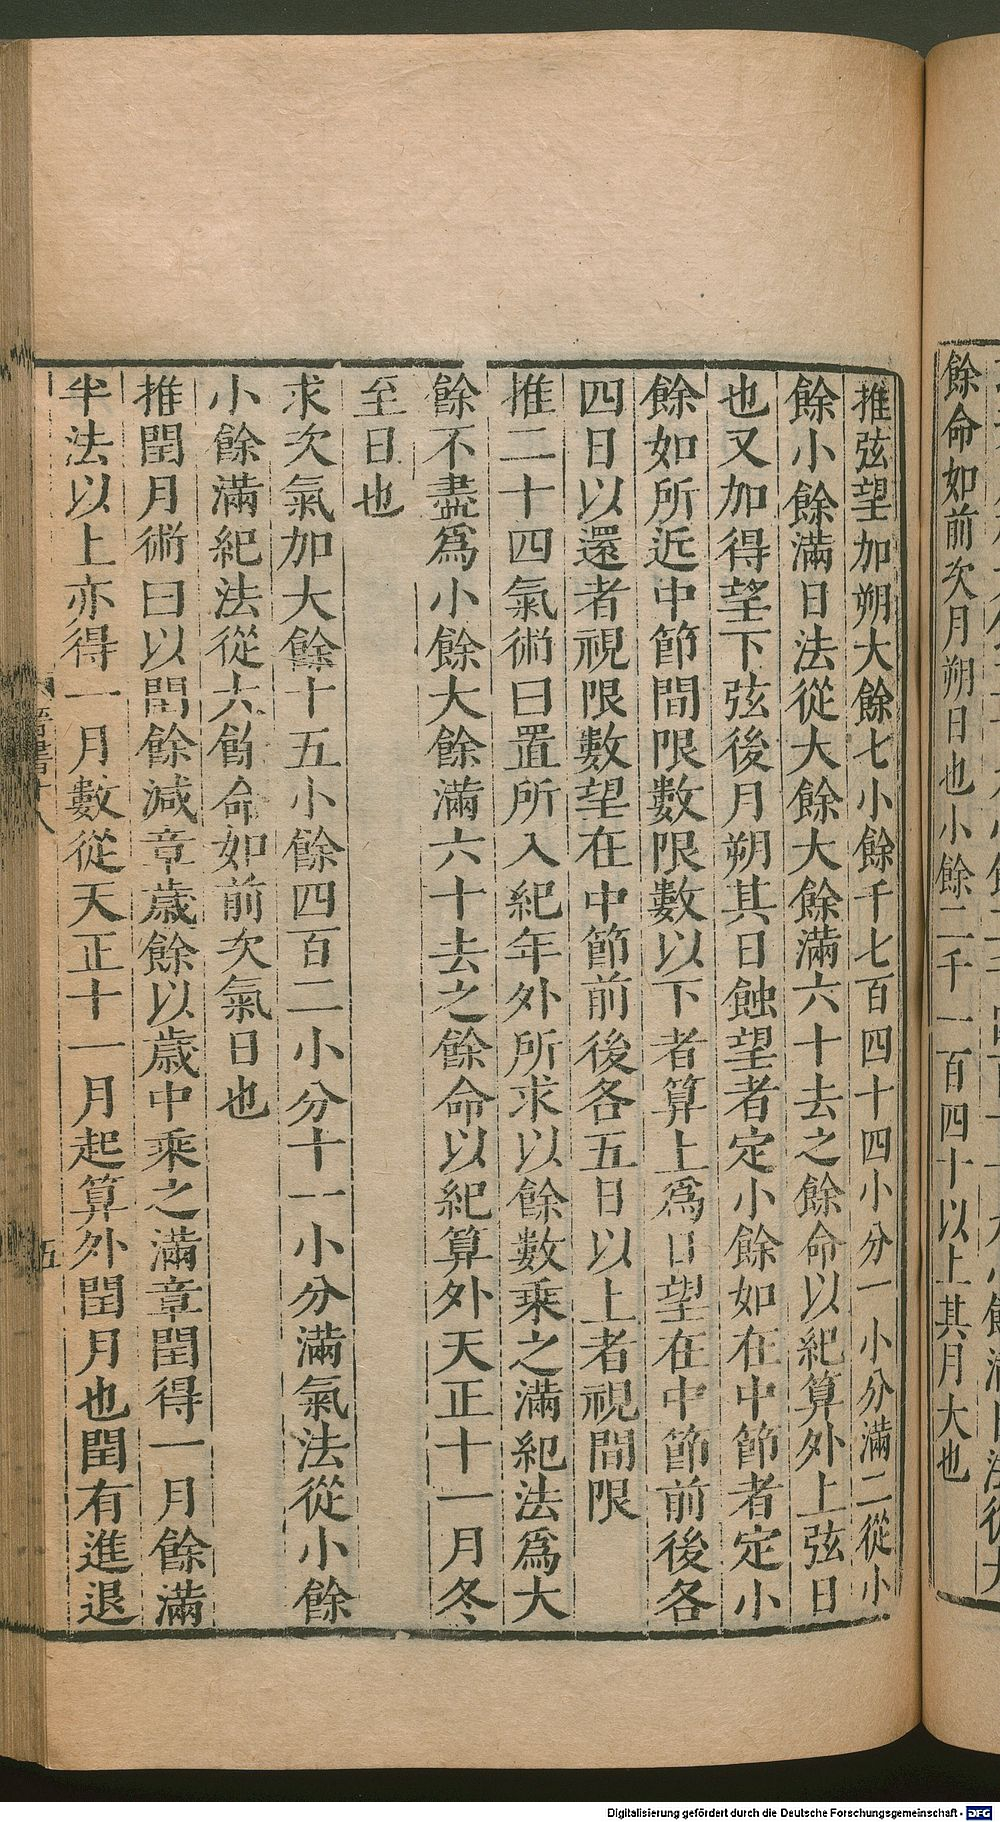 餘命如前次月朔日也小餘二千一百四十以上其月大也
推弦望加朔大餘七小餘千七百四十四小分一小分滿二從小
餘小餘滿日法從大餘大餘滿六十去之餘命以紀算外上弦日
也又加得望下弦後月朔其日蝕望者定小餘如在中節者定小
餘如所近中節間限數限數以下者算上爲日望在中節前後各
四日以還者視限數望在中節前後各五日以上者視間限
推二十四氣術曰置所入紀年外所求以餘數乘之滿紀法爲大
餘不盡爲小餘大餘滿六十去之餘命以紀算外天正十一月冬
至日也
求次氣加大餘十五小餘四百二小分十一小分滿氣法從小餘
小餘滿紀法從大餘命如前次氣日也
推閏月術曰以閏餘減章歲餘以歲中乘之滿章閏得一月餘滿
半法以上亦得一月數從天正十一月起算外閏月也閏有進退
五
Digitalisierung gefördert durch die Deutsche Forschungsgemeinschaft - DFG